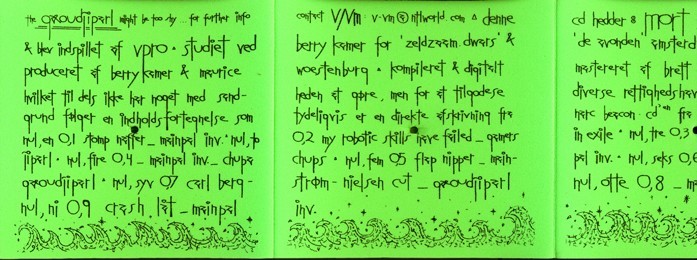 the goudjipal might be too shy ... for further info
& blev indspillet af vpro · studiet ved
produceret af berry kamer & maurice
hvilket til dels ikke har noget med sand-
grund følger en indholdsfortegnelse. som
nul, en 0,1 stomp høfler _ mainpal inv. · nul, to
jipal · nul, fire 0,4 _ mainpal inv. _ chups
goudjipal · nul, syv 0,7 carl berg -
nul, ni 0,9 crash list _ mainpal
contact V/Vm : v-vm @ ntlworld.com · denne
berry kamer for 'zeldzaam dwars' &
woestenburg · kompileret & digitalt
heden at gøre, men for at tilgodese
tydeligvis er en direkte afskrivning fra
0,2 my robotic skills have failed _ gamers
chups · nul, fem 0,5 flap nipper _ main-
strøm - nielsen cut _ goudjipal
inv.
cd hedder 8 mort
'de avonden' amsterd
mastereret af brett
diverse rettighedshav
harc beacon · cd'en frs
in exile · nul, tre 0,3
pal inv. · nul, seks 0,6
nul, otte 0,8 _ ma